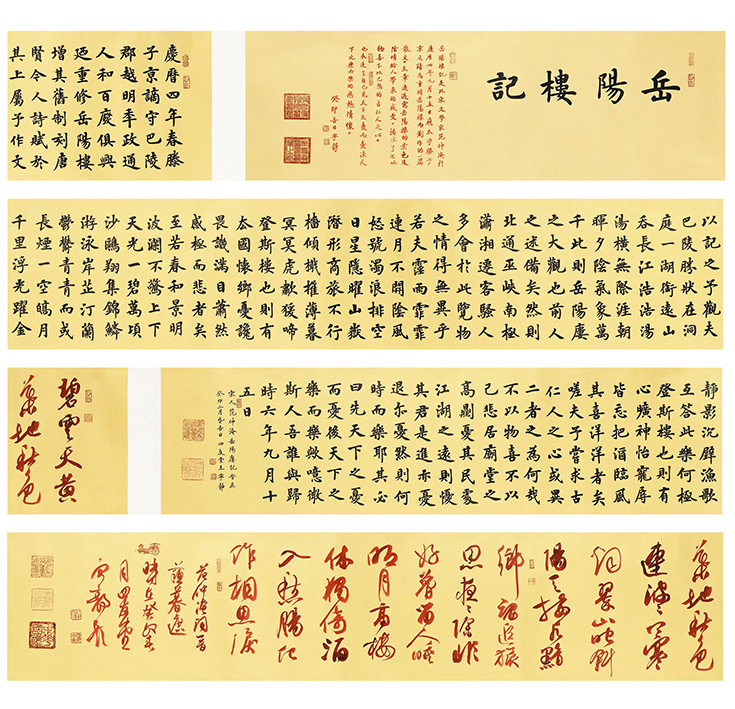 岳陽樓記
岳陽樓記是北宋文學家范仲淹於
慶曆四年春滕
子京謫守巴陵
郡越明年政通
人和百廢俱興
廼重修岳陽樓
增其舊制刻唐
賢今人詩賦於
其上屬予作文
以記之予觀夫
巴陵勝狀在洞
庭一湖銜遠山
吞長江浩浩湯
湯橫無際涯朝
暉夕陰氣象萬
千此則岳陽樓
之大觀也前人
之述備矣然則
北通巫峽南極
瀟湘遷客騷人
多會於此覽物
之情得無異乎
若夫霪雨霏霏
連月不開陰風
怒號濁浪排空
日星隱曜山嶽
潛形商旅不行
檣傾楫摧薄暮
冥冥虎嘯猿啼
登斯樓也則有
去國懷鄉憂讒
畏譏滿目蕭然
感極而悲者矣
至若春和景明
波瀾不驚上下
天光一碧萬頃
沙鷗翔集錦鱗
游泳岸芷汀蘭
鬱鬱青青而或
長煙一空皓月
千里浮光躍金
靜影沉璧漁歌
互答此樂何極
登斯樓也則有
心曠神怡寵辱
皆忘把酒臨風
其喜洋洋者矣
嗟夫予嘗求古
仁人之心或異
二者之為何哉
不以物喜不以
己悲居廟堂之
高則憂其民處
江湖之遠則憂
其君是進亦憂
退亦憂然則何
時而樂耶其必
曰先天下之憂
而憂後天下之
樂而樂歟噫微
斯人吾誰與歸
時六年九月十
五日
宋人范仲淹岳陽樓記
碧雲天黃
葉地秋色
葉地秋色
連波波上寒
煙翠山映斜
陽天接水黯
鄉魂追旅
思夜夜除非
好夢留人睡
明月高樓
休獨倚酒
入愁腸化
作相思淚
范仲淹詞